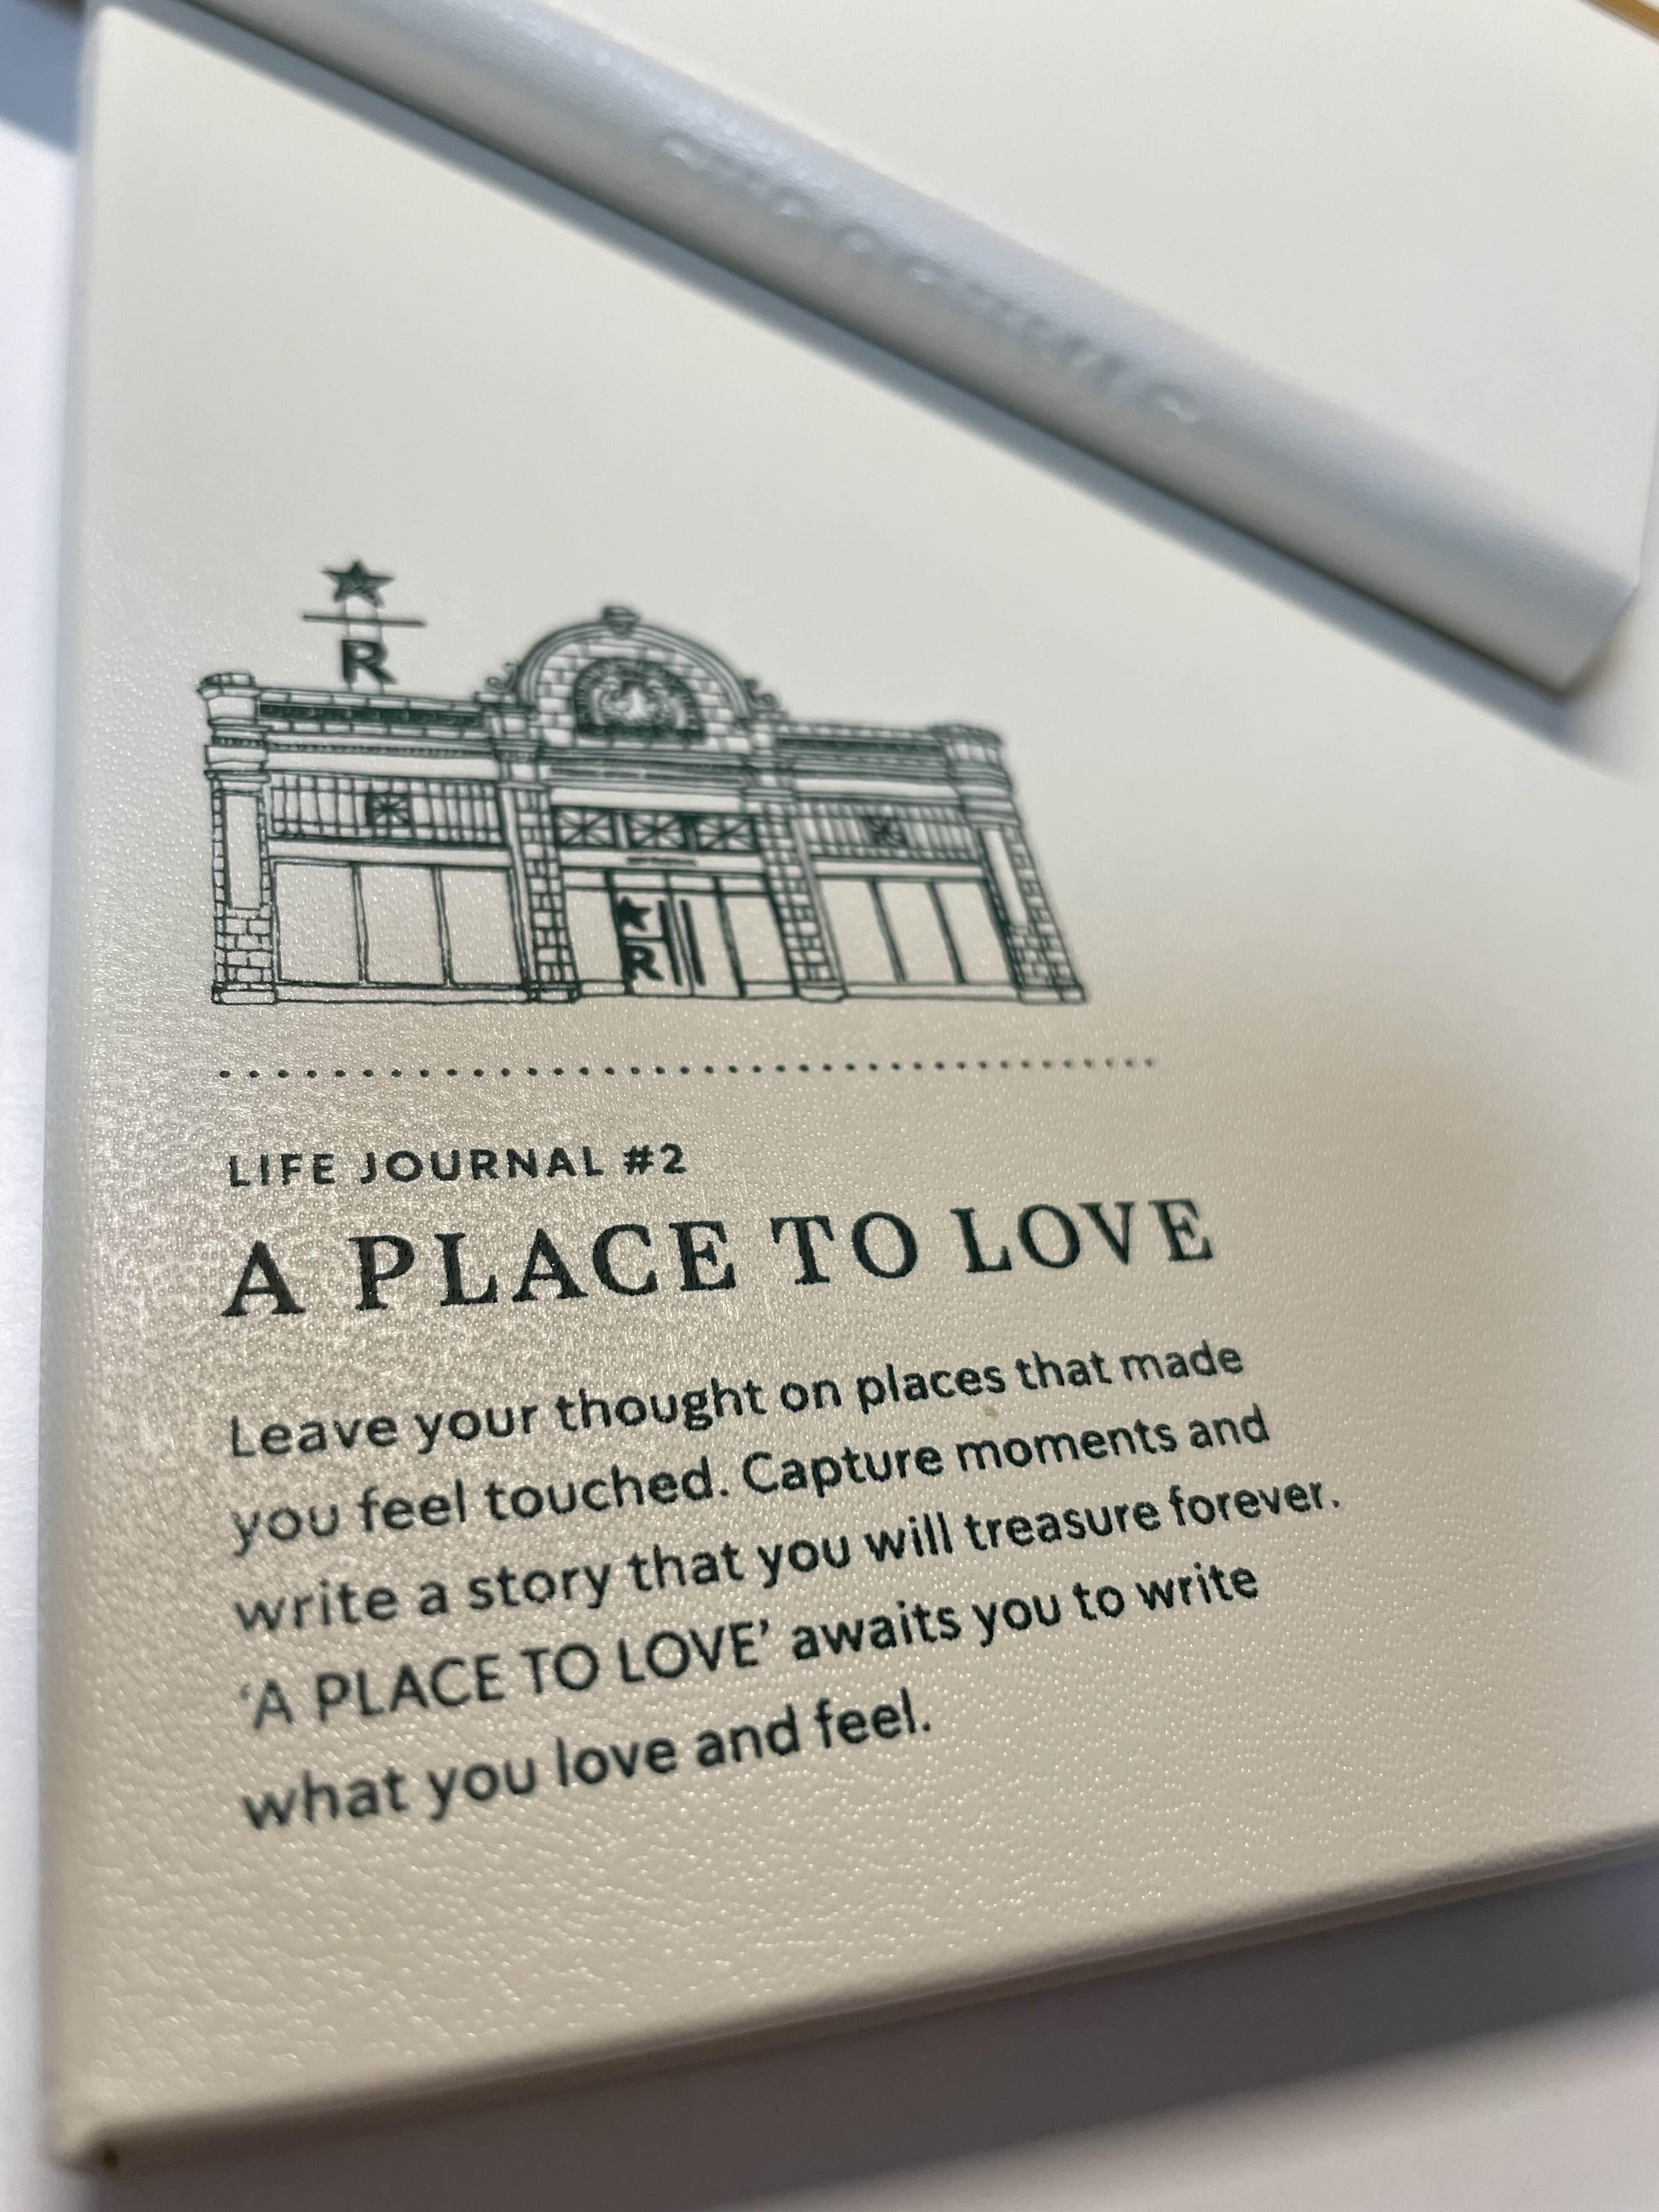 R
R
LIFE JOURNAL #2
A PLACE TO LOVE
Leave your thought on places that made
you feel touched. Capture moments and
write a story that you will treasure forever.
‘A PLACE TO LOVE’ awaits you to write
what you love and feel.